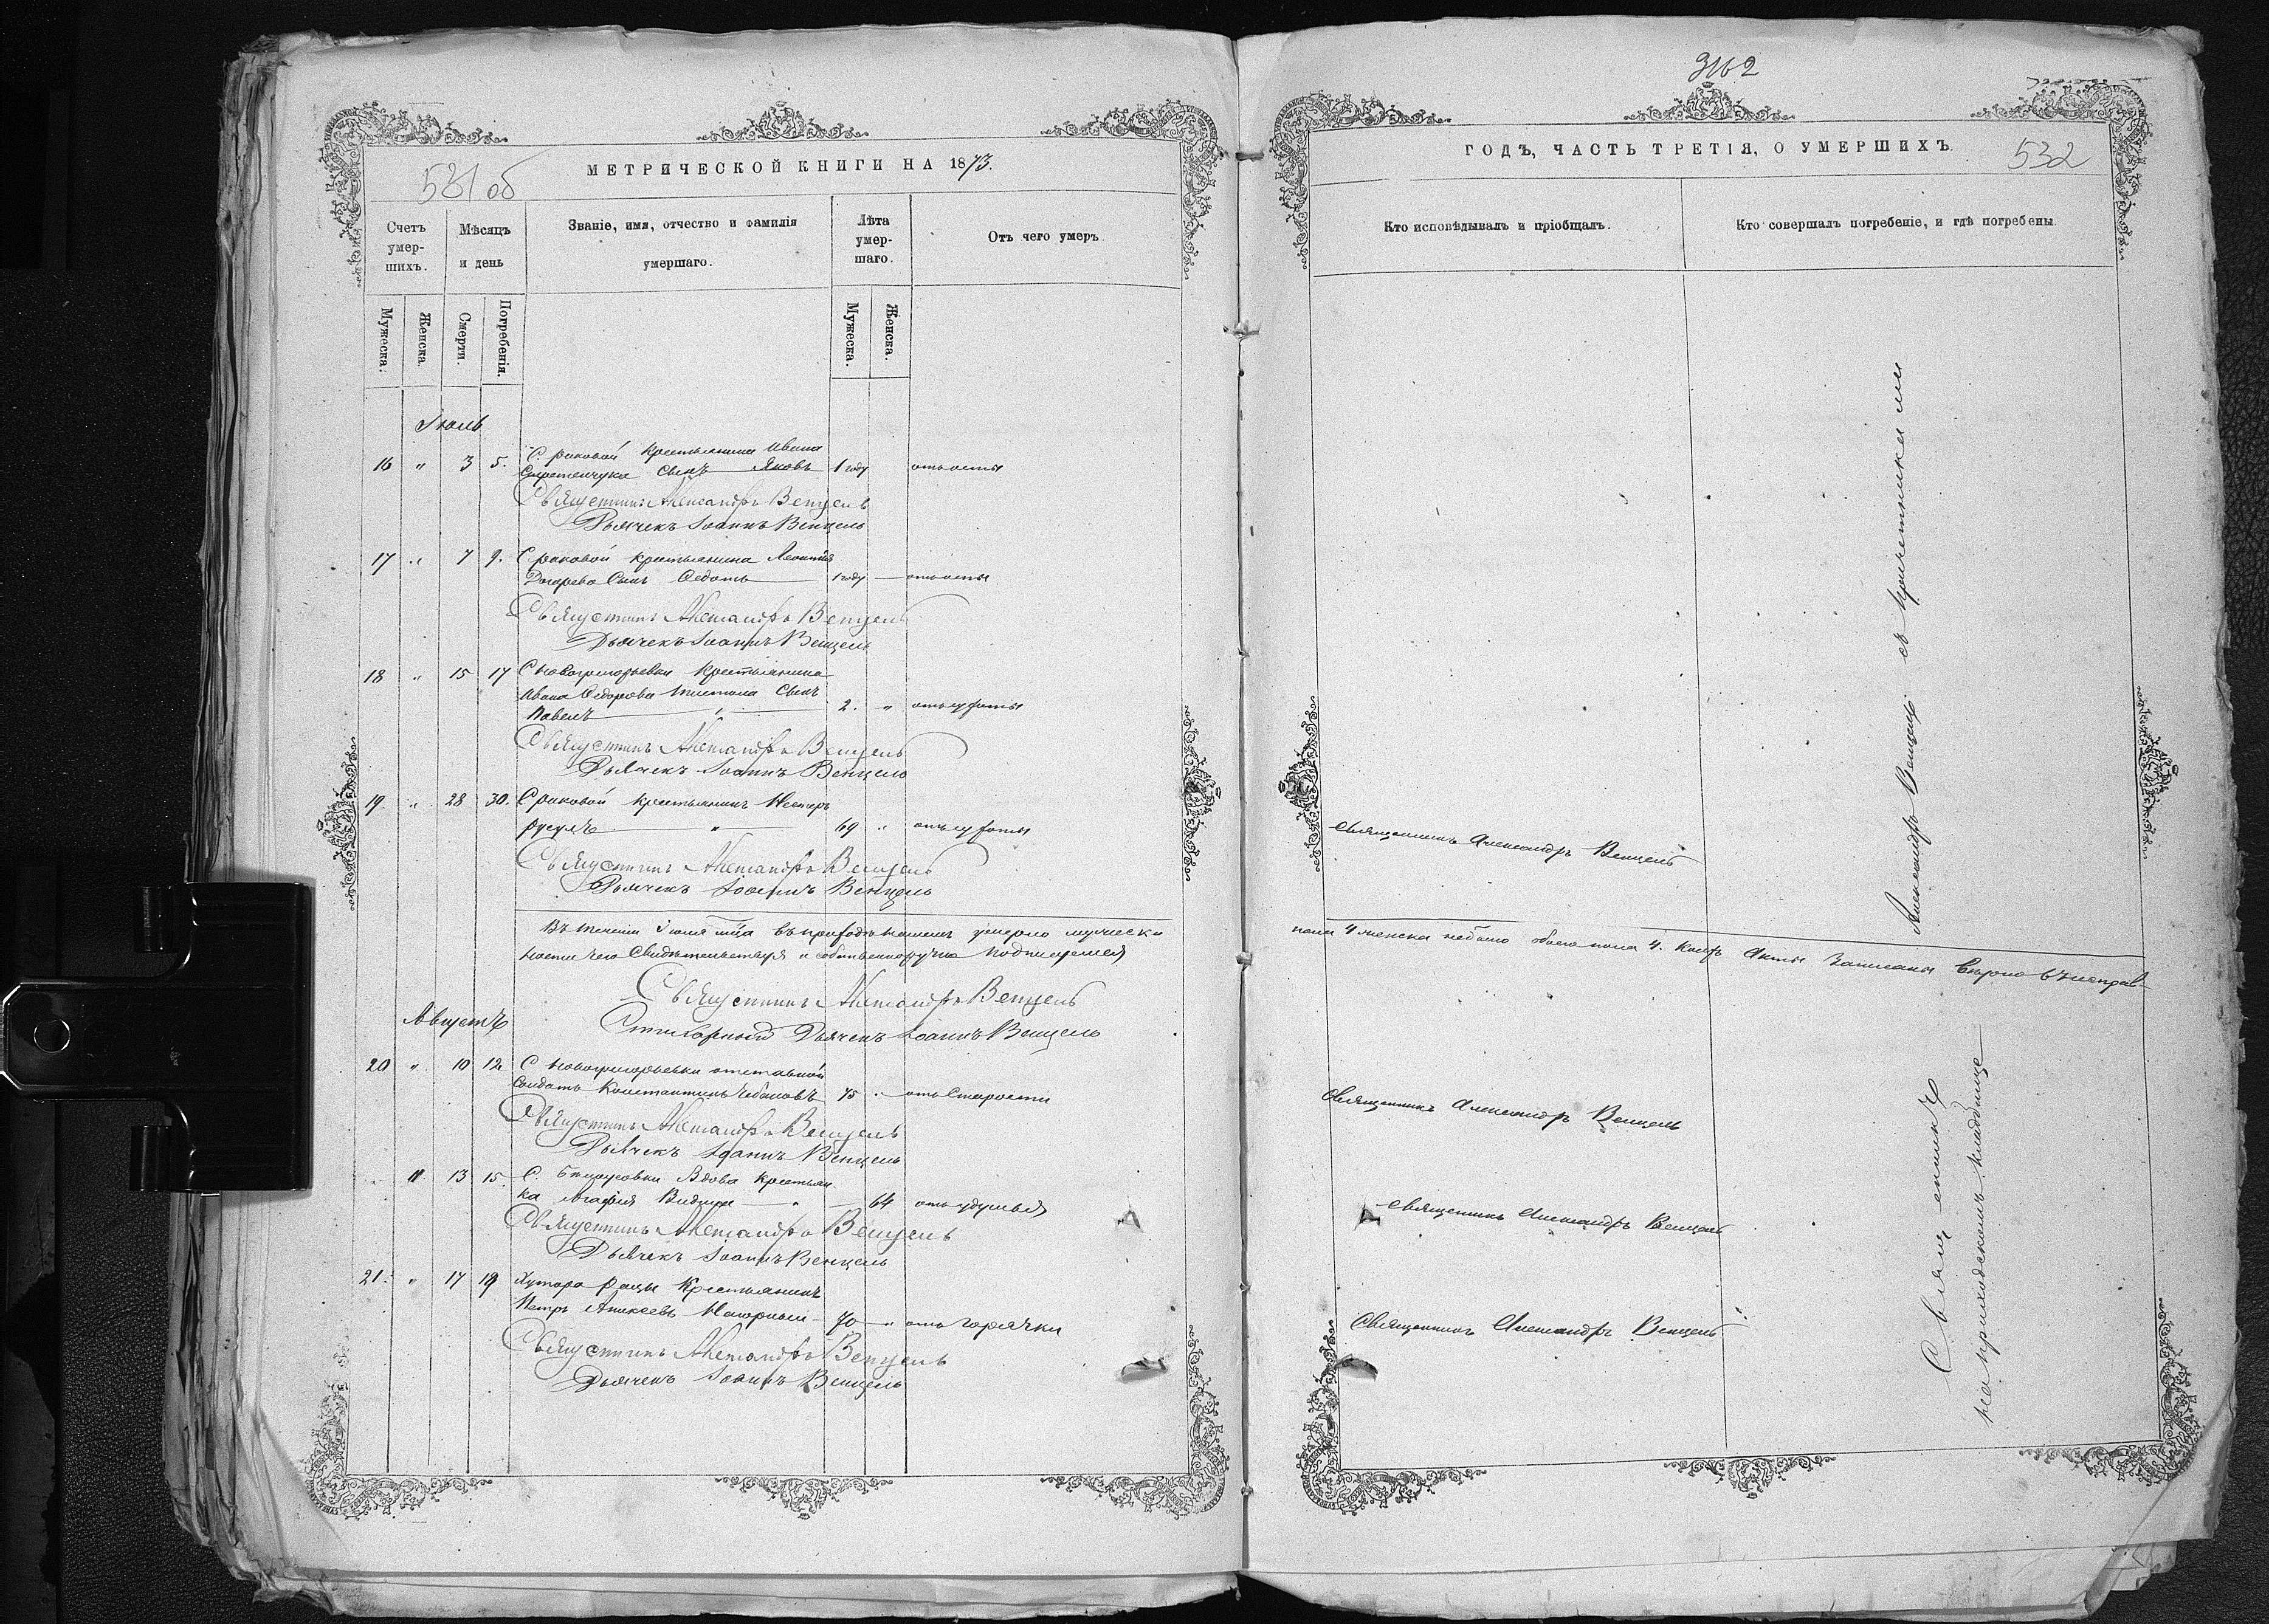 531 об
МЕТРИЧЕСКОЙ КНИГИ НА 1873.
Счетъ умер-шихъ.
Мѣсяцъ и день
Званіе, имя, отчество и фамилія
умершаго.
Лѣта умер-шаго.
Отъ чего умеръ
Мужеска.
Женска.
Смерти.
Погребенія.
Мужеска.
Женска.
Іюль
16 " 3 5. С. раковой крестьянина Ивана
сынъ Яковъ 1 году отъ оспы
Священникъ Александръ Венцель
Дьячекъ Іоаннъ Венцель
17 " 7 9. С раковой крестьянина Леонтія
сынъ Федотъ 1 году отъ оспы
Священникъ Александръ Венцель
Дьячекъ Іоаннъ Венцель
18 " 15 17 С Новогригорьевки крестьянина
Ивана Федорова сынъ
Павелъ 2. "
Священникъ Александръ Венцель
Дьячекъ Іоаннъ Венцель
19 " 28 30. С раковой крестьянинъ Несторъ
69 "
Священникъ Александръ Венцель
Дьячекъ Іоаннъ Венцель
Въ теченіи Іюля мца въ приходѣ нашемъ умерло мужеска
ности чего свидѣтельствуя и собственноручно подписуемся
Священникъ Александръ Венцель
Стихарный Дьячекъ Іоаннъ Венцель
Августъ
20 " 10 12 С Новогригорьевки отставной
солдатъ Константинъ Чебановъ 75 " отъ старости
Священникъ Александръ Венцель
Дьячекъ Іоаннъ Венцель
" 13 15. С. вдова крестьян
ка Агафія 64 отъ удушья
Священникъ Александръ Венцель
Дьячекъ Іоаннъ Венцель
21. " 17 19 Хутора рацы крестьянинъ
Петръ Алексеевъ Нагорный 70 " отъ горячки
Священникъ Александръ Венцель
Дьячекъ Іоаннъ Венцель
3162
ГОДЪ, ЧАСТЬ ТРЕТІЯ, О УМЕРШИХЪ.
532
Кто исповѣдывалъ и пріобщалъ.
Кто совершалъ погребеніе, и гдѣ погребены
Священникъ Александръ Венцель
пола 4 женска небыло обоего пола 4. акты записаны вѣрно въ исправ-
Священникъ Александръ Венцель
Священникъ Александръ Венцель
Священникъ Александръ Венцель
Священникъ Александръ Венцель съ причетниками
на приходскомъ кладбище